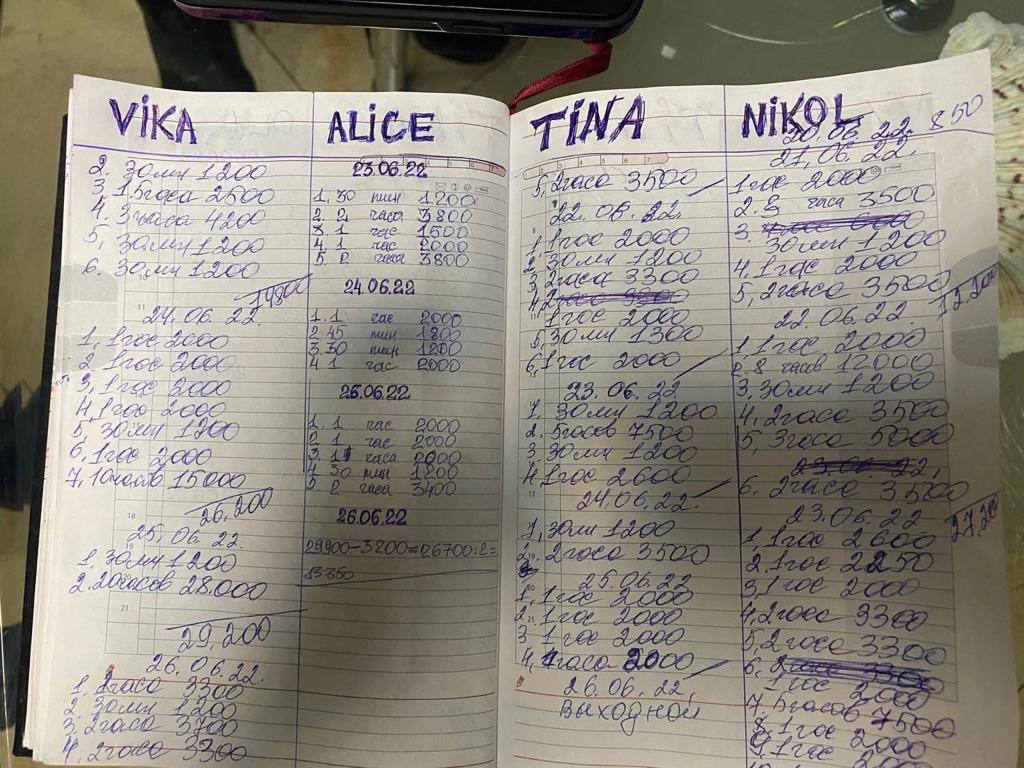 VIKA
2. 30ми 1200
3 1,5часа 2500
4. 3часа 4200
5, 30ми 1200
6. 30ми 1200
14800
24.06.22.
1, 1час 2000
2 1час 2000
3, 1час 2000
4, 1час 2000
5 30ми 1200
6, 1час 2000
7, 10часов 15000
26,200
25.06.22.
1, 30ми 1200
2. 20часов 28.000
29,200
26.06.22.
1. 2часа 3300
2. 30ми 1200
3. 2часа 3700
4, 2часа 3300
ALICE
23.06.22
1. 30 мин 1200
2. 2 часа 3800
3 1 час 1500
4. 1 час 2000
5. 2 часа 3800
24.06.22
1. 1 час 2000
2 45 мин 1800
3. 30 мин 1200
4 1 час 2000
25.06.22
1. 1 час 2000
2 1 час 2000
3 1 часа 2000
4 30 мин 1200
5 2 часа 3400
26.06.22
29900-3200=26700:2=
13350
TINA
5, 2часа 3500
22.06.22.
1 1час 2000
2 30ми 1200
3 2часа 3300
4. 2часа 3300
1час 2000
5, 30ми 1300
6, 1час 2000
23.06.22
1. 30ми 1200
2. 5часов 7500
3 30ми 1200
4. 1час 2600
24.06.22.
1, 30ми 1200
2, 2часа 3500
25.06.22
1, 1час 2000
2. 1час 2000
3 1час 2000
4, часа 2000
26.06.22,
выходной
NIKOL
20.06.22. 850
21,06.22.
1час 2000
2. 2 часа 3500
3.
30мин 1200
4, 1час 2000
5, 2часа 3500
22.06.22.
1, 1час 2000
2. 8 часов 12000
3, 30ми 1200
4, 2часа 3500
5, 3часа 5000
23.06.22,
6. 2часа 3500
27,200
23.06.22
1, 1час 2600
2, 1час 2250
3, 1час 2000
4, 2часа 3300
5, 2часа 3300
6, 2часа 3300
1час 2000
7. 5часов 7500
8, 1час 2000
9, 1час 2000